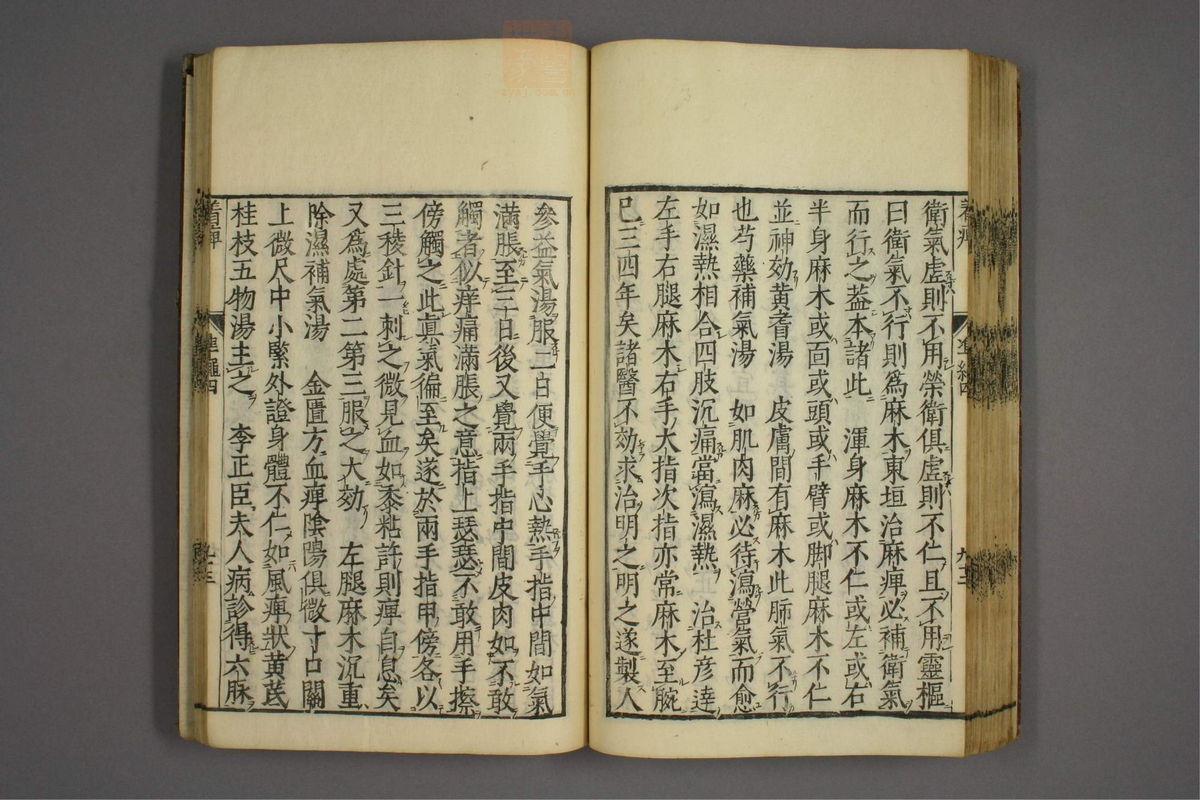 衛氣虛則不用榮衛俱虛則不仁且不用靈樞
曰衛氣不行則爲麻木東垣治麻痺必補衛氣
而行之葢本諸此　渾身麻木不仁或左或右
半身麻木或面或頭或手臂或脚腿麻木不仁
並神効黃耆湯　皮膚間有麻木此肺氣不行
也芍藥補氣湯　如肌肉麻必待瀉營氣而愈
如濕熱相合四肢沉痛當瀉濕熱　治杜彦逹
左手右腿麻木右手大指次指亦常麻木至腕
已三四年矣諸醫不効求治明之明之遂製人
參益氣湯服二白便覺手心熱手指中間如氣
滿脹至三日後又覺兩手指中間皮肉如不敢
觸者似痒痛滿脹之意指上瑟瑟不敢用手擦
傍觸之此眞氣徧至矣遂於兩手指甲傍各以
三稜針一刺之微見血如黍粘許則痺自息矣
又爲處第二第三服之大効　左腿麻木沉重
除濕補氣湯　金匱方血痺陰陽俱微寸口關
上微尺中小緊外證身體不仁如風痺狀黃芪
桂枝五物湯主之　李正臣夫人病診得六脉
着痺
準繩四
九十三